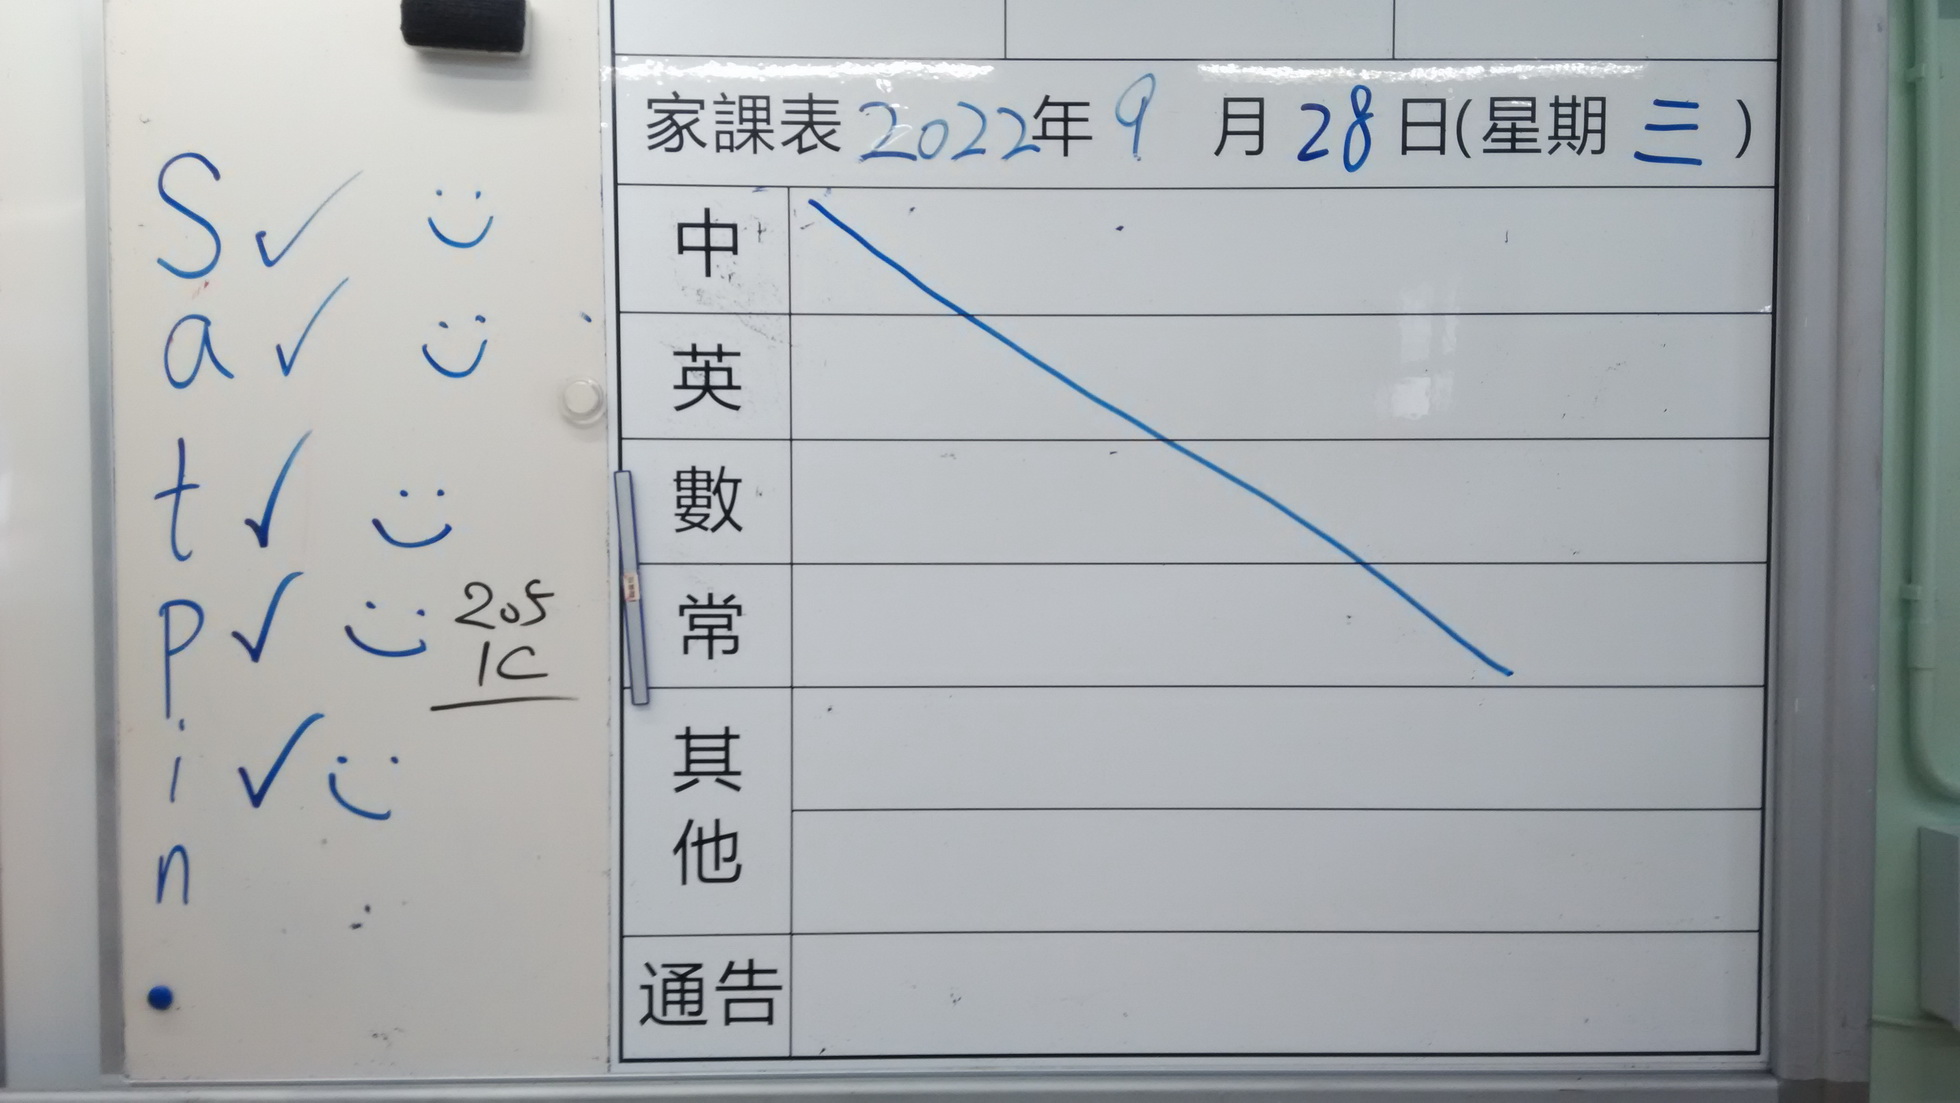 S
a
t
p
205
1C
i
n
家課表 2022年 9 月 28 日(星期 三)
中
英
數
常
其
他
通告